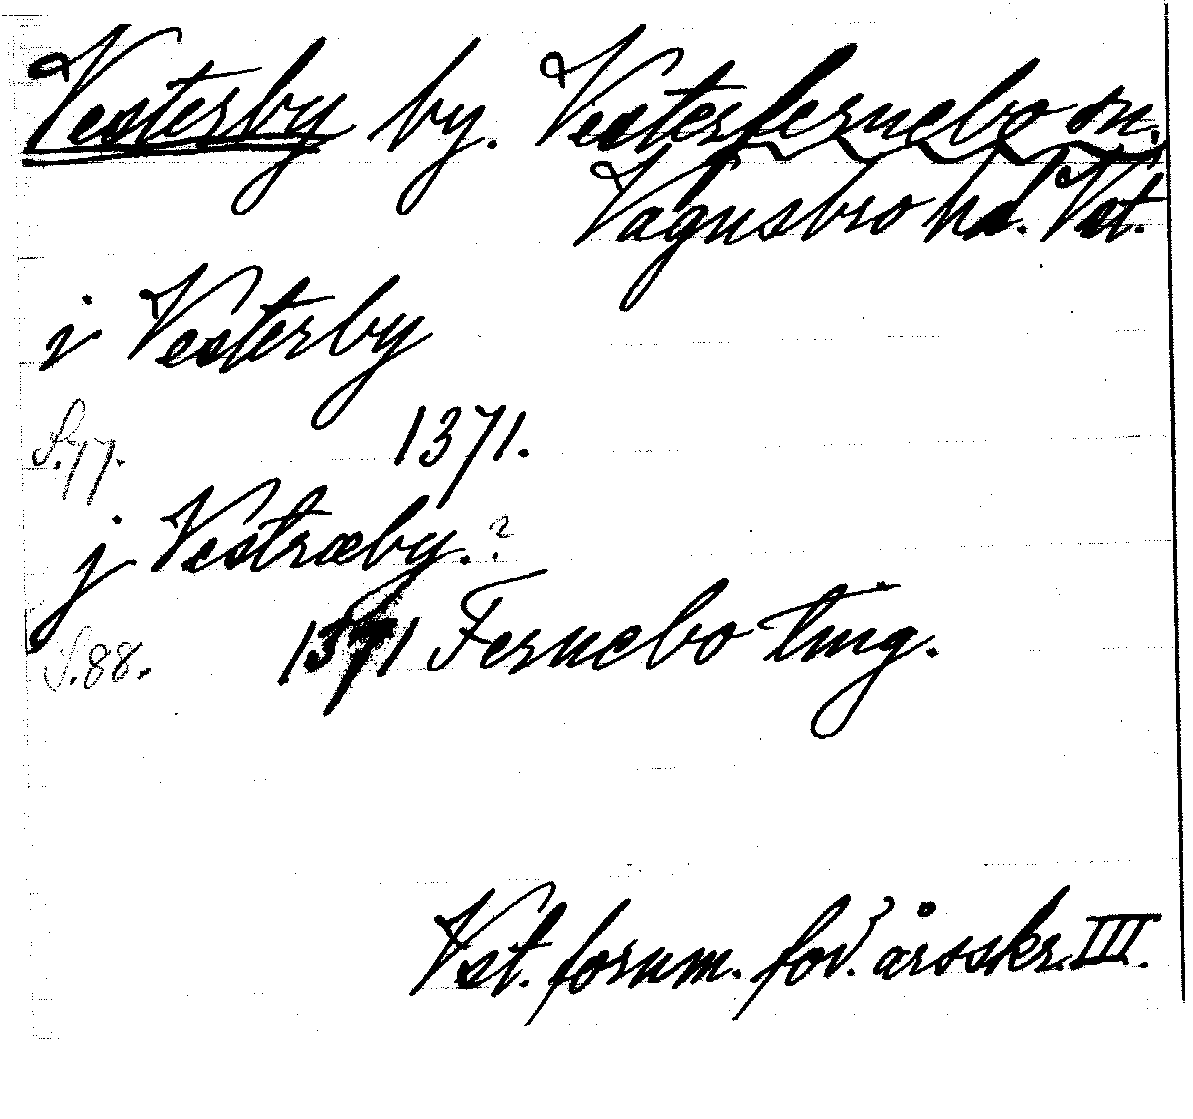 Vesterby by. Vesterfernebo sn.
Vagnsbro hd. Vst.
i Vesterby
S. 77. 1371.
j Vestræby. ?
S. 88. 1371 Fernebo ting.
Vst. fornm. för. årsskr. III.